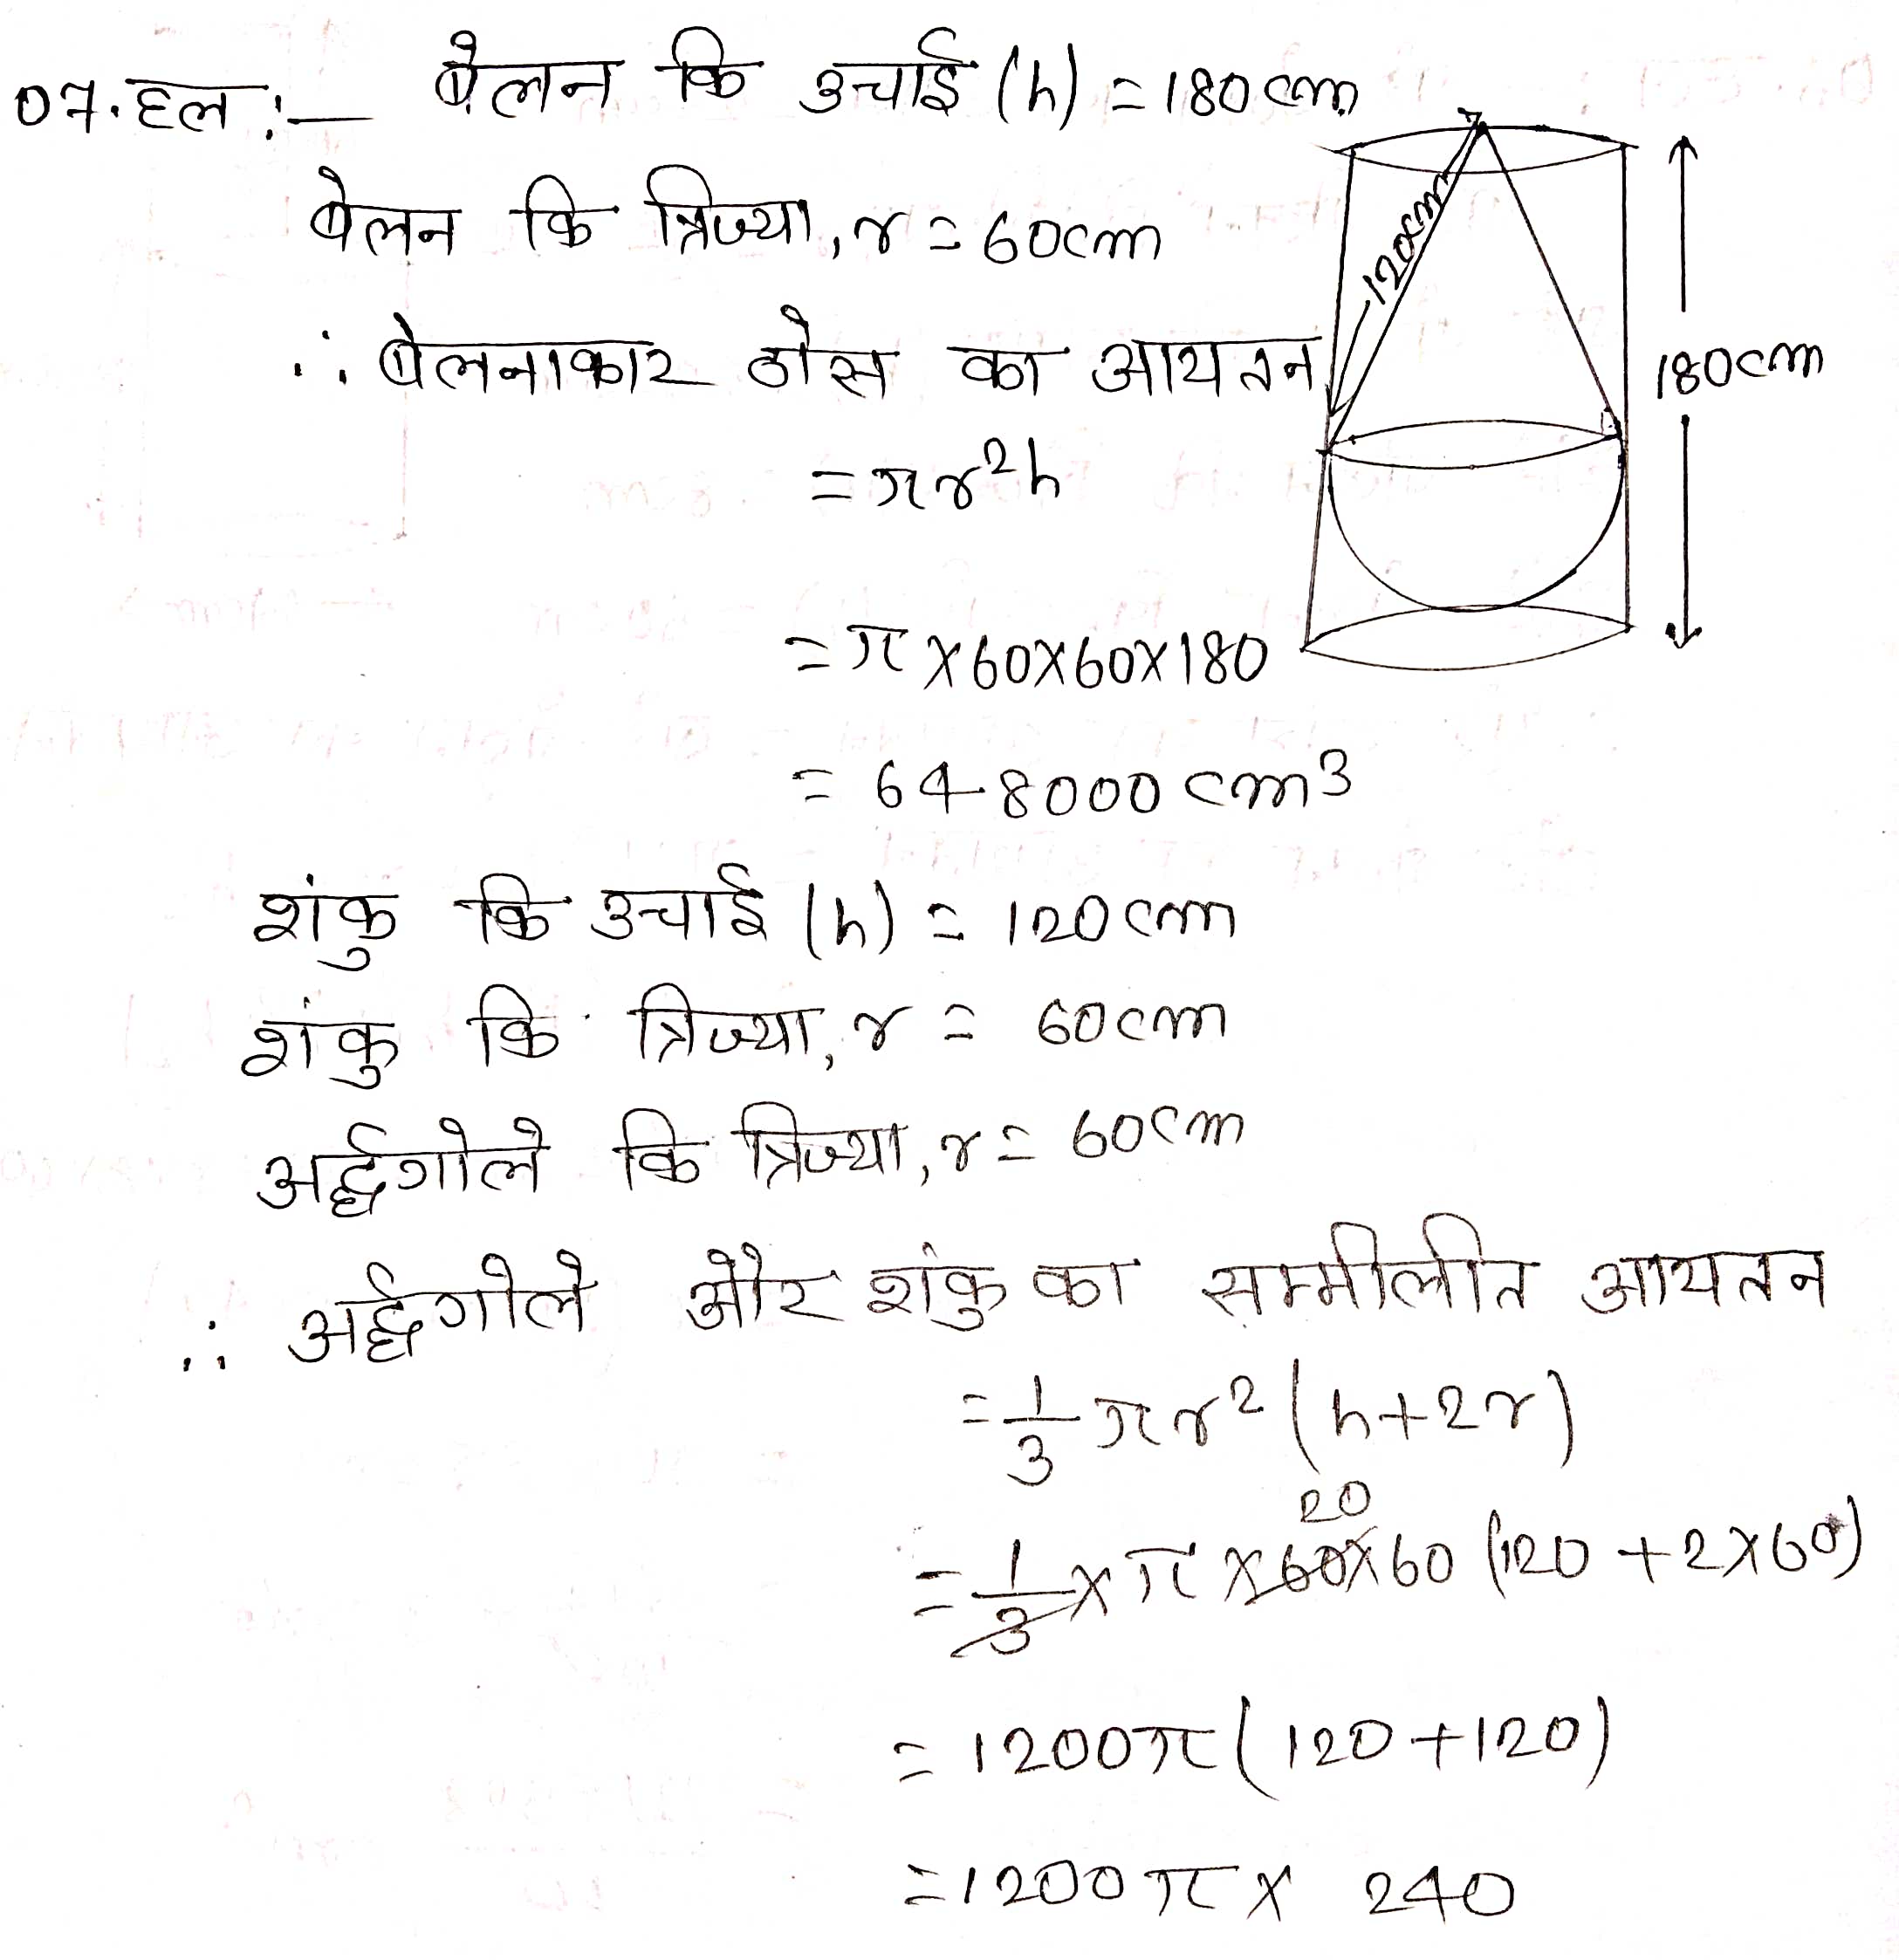 07. हल :— बेलन कि उचाई (h) = 180 cm
बेलन कि त्रिज्या, r = 60cm
120cm
∴ बेलनाकार ठोस का आयतन
180cm
= πr²h
= π × 60×60×180
= 648000 cm³
शंकु कि उचाई (h) = 120 cm
शंकु कि त्रिज्या, r = 60 cm
अर्द्धगोले कि त्रिज्या, r = 60cm
∴ अर्द्धगोले और शंकु का सम्मीलीत आयतन
= 1/3 πr² (h+2r)
20
= 1/3 × π × 60×60 (120 + 2×60)
= 1200π (120+120)
= 1200π × 240